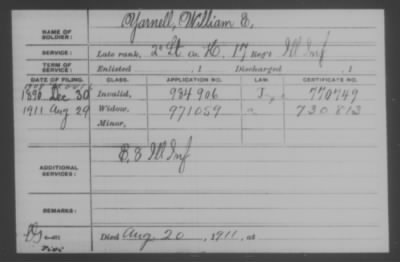 NAME OF SOLDIER: Yarnell, William E.
SERVICE: Late rank, 2d Lt. Co. K, 17 Reg't Ill Inf
TERM OF SERVICE: Enlisted , 1 Discharged , 1
DATE OF FILING. CLASS. APPLICATION NO. LAW. CERTIFICATE NO.
1890 Dec 30 Invalid, 984906 J, 770749
1911 Aug 29 Widow, 971059 a 730813
Minor,
ADDITIONAL SERVICES: B. 8 Ill Inf
REMARKS:
Died Aug 20, 1911, at